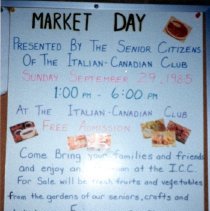 MARKET DAY
PRESENTED BY THE SENIOR CITIZENS
OF THE ITALIAN-CANADIAN CLUB
SUNDAY SEPTEMBER 29, 1985
1:00 PM - 6:00 PM
AT THE ITALIAN-CANADIAN CLUB
FREE ADMISSION
Come Bring your families and friends
and enjoy an at the I.C.C.
For Sale will be fresh fruits and vegetables
from the gardens of our seniors, crafts and